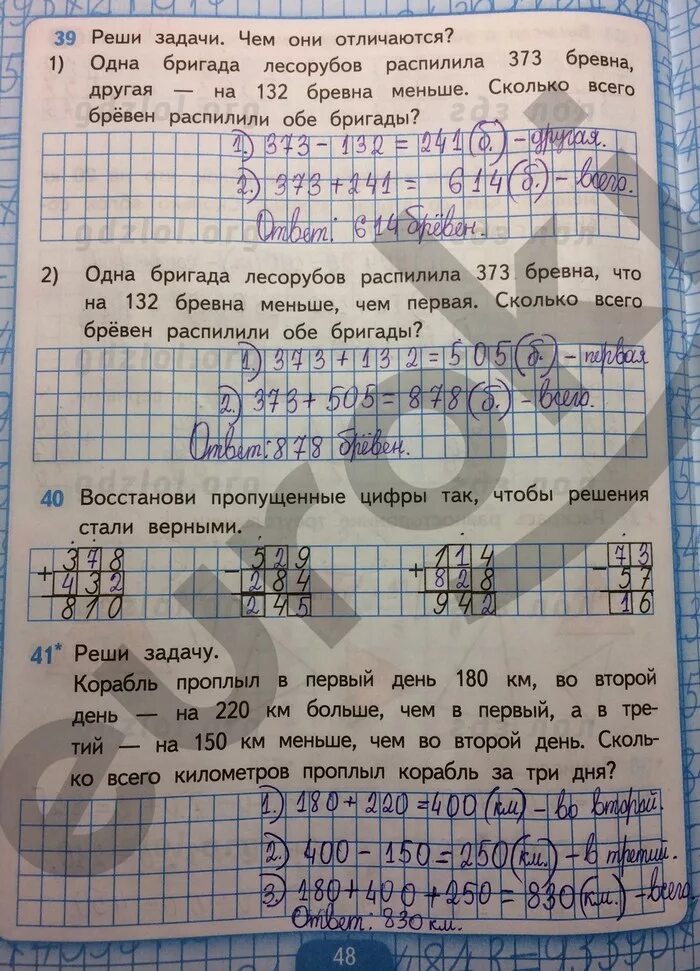 39 Реши задачи. Чем они отличаются?
1) Одна бригада лесорубов распилила 373 бревна,
другая — на 132 бревна меньше. Сколько всего
брёвен распилили обе бригады?
1.) 373 - 132 = 241 (б.) - другая.
2.) 373 + 241 = 614 (б.) - всего.
Ответ: 614 брёвен.
2) Одна бригада лесорубов распилила 373 бревна, что
на 132 бревна меньше, чем первая. Сколько всего
брёвен распилили обе бригады?
1.) 373 + 132 = 505 (б.) - первая
2.) 373 + 505 = 878 (б.) - всего.
Ответ: 878 брёвен.
40 Восстанови пропущенные цифры так, чтобы решения
стали верными.
+ 378 - 529 + 114 - 73
432 284 828 57
810 245 942 16
41* Реши задачу.
Корабль проплыл в первый день 180 км, во второй
день — на 220 км больше, чем в первый, а в тре-
тий — на 150 км меньше, чем во второй день. Сколь-
ко всего километров проплыл корабль за три дня?
1.) 180 + 220 = 400 (км) - во второй.
2.) 400 - 150 = 250 (км.) - в третий.
3.) 180 + 400 + 250 = 830 (км.) - всего.
Ответ: 830 км.
48
euroki